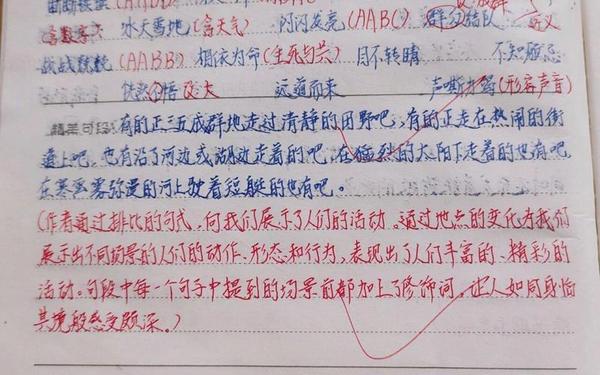 冰天雪地(含天气) 闪闪发亮(AABC) 成群结队
战战兢兢(AABB) 相依为命(生死与共) 目不转睛 不知疲惫
恍然大悟 远道而来 声嘶力竭(形容声音)
精美句段:有的正三五成群地走过清静的田野吧,有的正走在热闹的街
道上吧,也有沿了河边或湖边走着的吧,在猛烈的太阳下走着的也有吧,
在寒雾弥漫的河上驶着短艇的也有吧。
(作者通过排比的句式,向我们展示了人们的活动。通过地点的变化为我们
展示出不同场景的人们的动作、形态和行为,表现出了人们丰富的、精彩的
活动。句段中每一个句子中提到的场景前都加上了修饰词,让人如同身临
其境般感受颇深。)